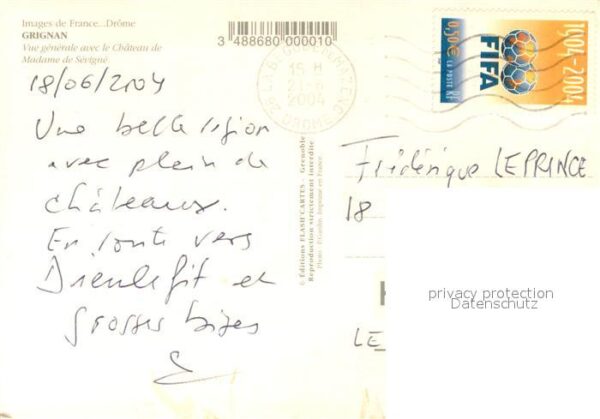 Images de France...Drôme
GRIGNAN
Vue générale avec le Château de
Madame de Sévigné
3 488680 000010
18/06/2004
Une belle région
avec plein de
châteaux.
En route vers
Dieulefit et
grosses bises
© Éditions FLASH CARTES - Grenoble
Reproduction strictement interdite
15 H
2004
DROME
0,50€ LA POSTE RF
FIFA
1904-2004
Frédérique LEPRINCE
18
LE
privacy protection
Datenschutz